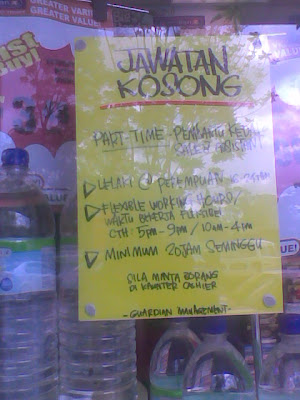 GREATER VARIETY
GREATER VALUE!
JAWATAN
KOSONG
PART-TIME - PEMBANTU KEDAI/
SALES ASSISTANT
LELAKI @ PEREMPUAN
FLEXIBLE WORKING HOURS/
WAKTU BEKERJA FLEKSIBEL
CTH: 5PM - 9PM / 10AM - 4PM
MINIMUM 20JAM SEMINGGU
SILA MINTA BORANG
DI KAUNTER CASHIER
- GUARDIAN MANAGEMENT -